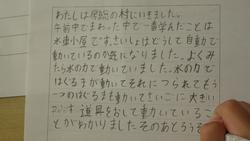 わたしは民話の村にいきました。
午前中でまわった中で一番学んだことは
水車小屋です。さいしょはどうして自動で
動いているのか気になりました。よくみ
たら水の力で動いていました。水の力で
はぐる子が動いてそれにつられてもう
一つのはぐるまも動いてさいごに大きい
道具をおして動いているこ
とがわかりました。そのあとうそ